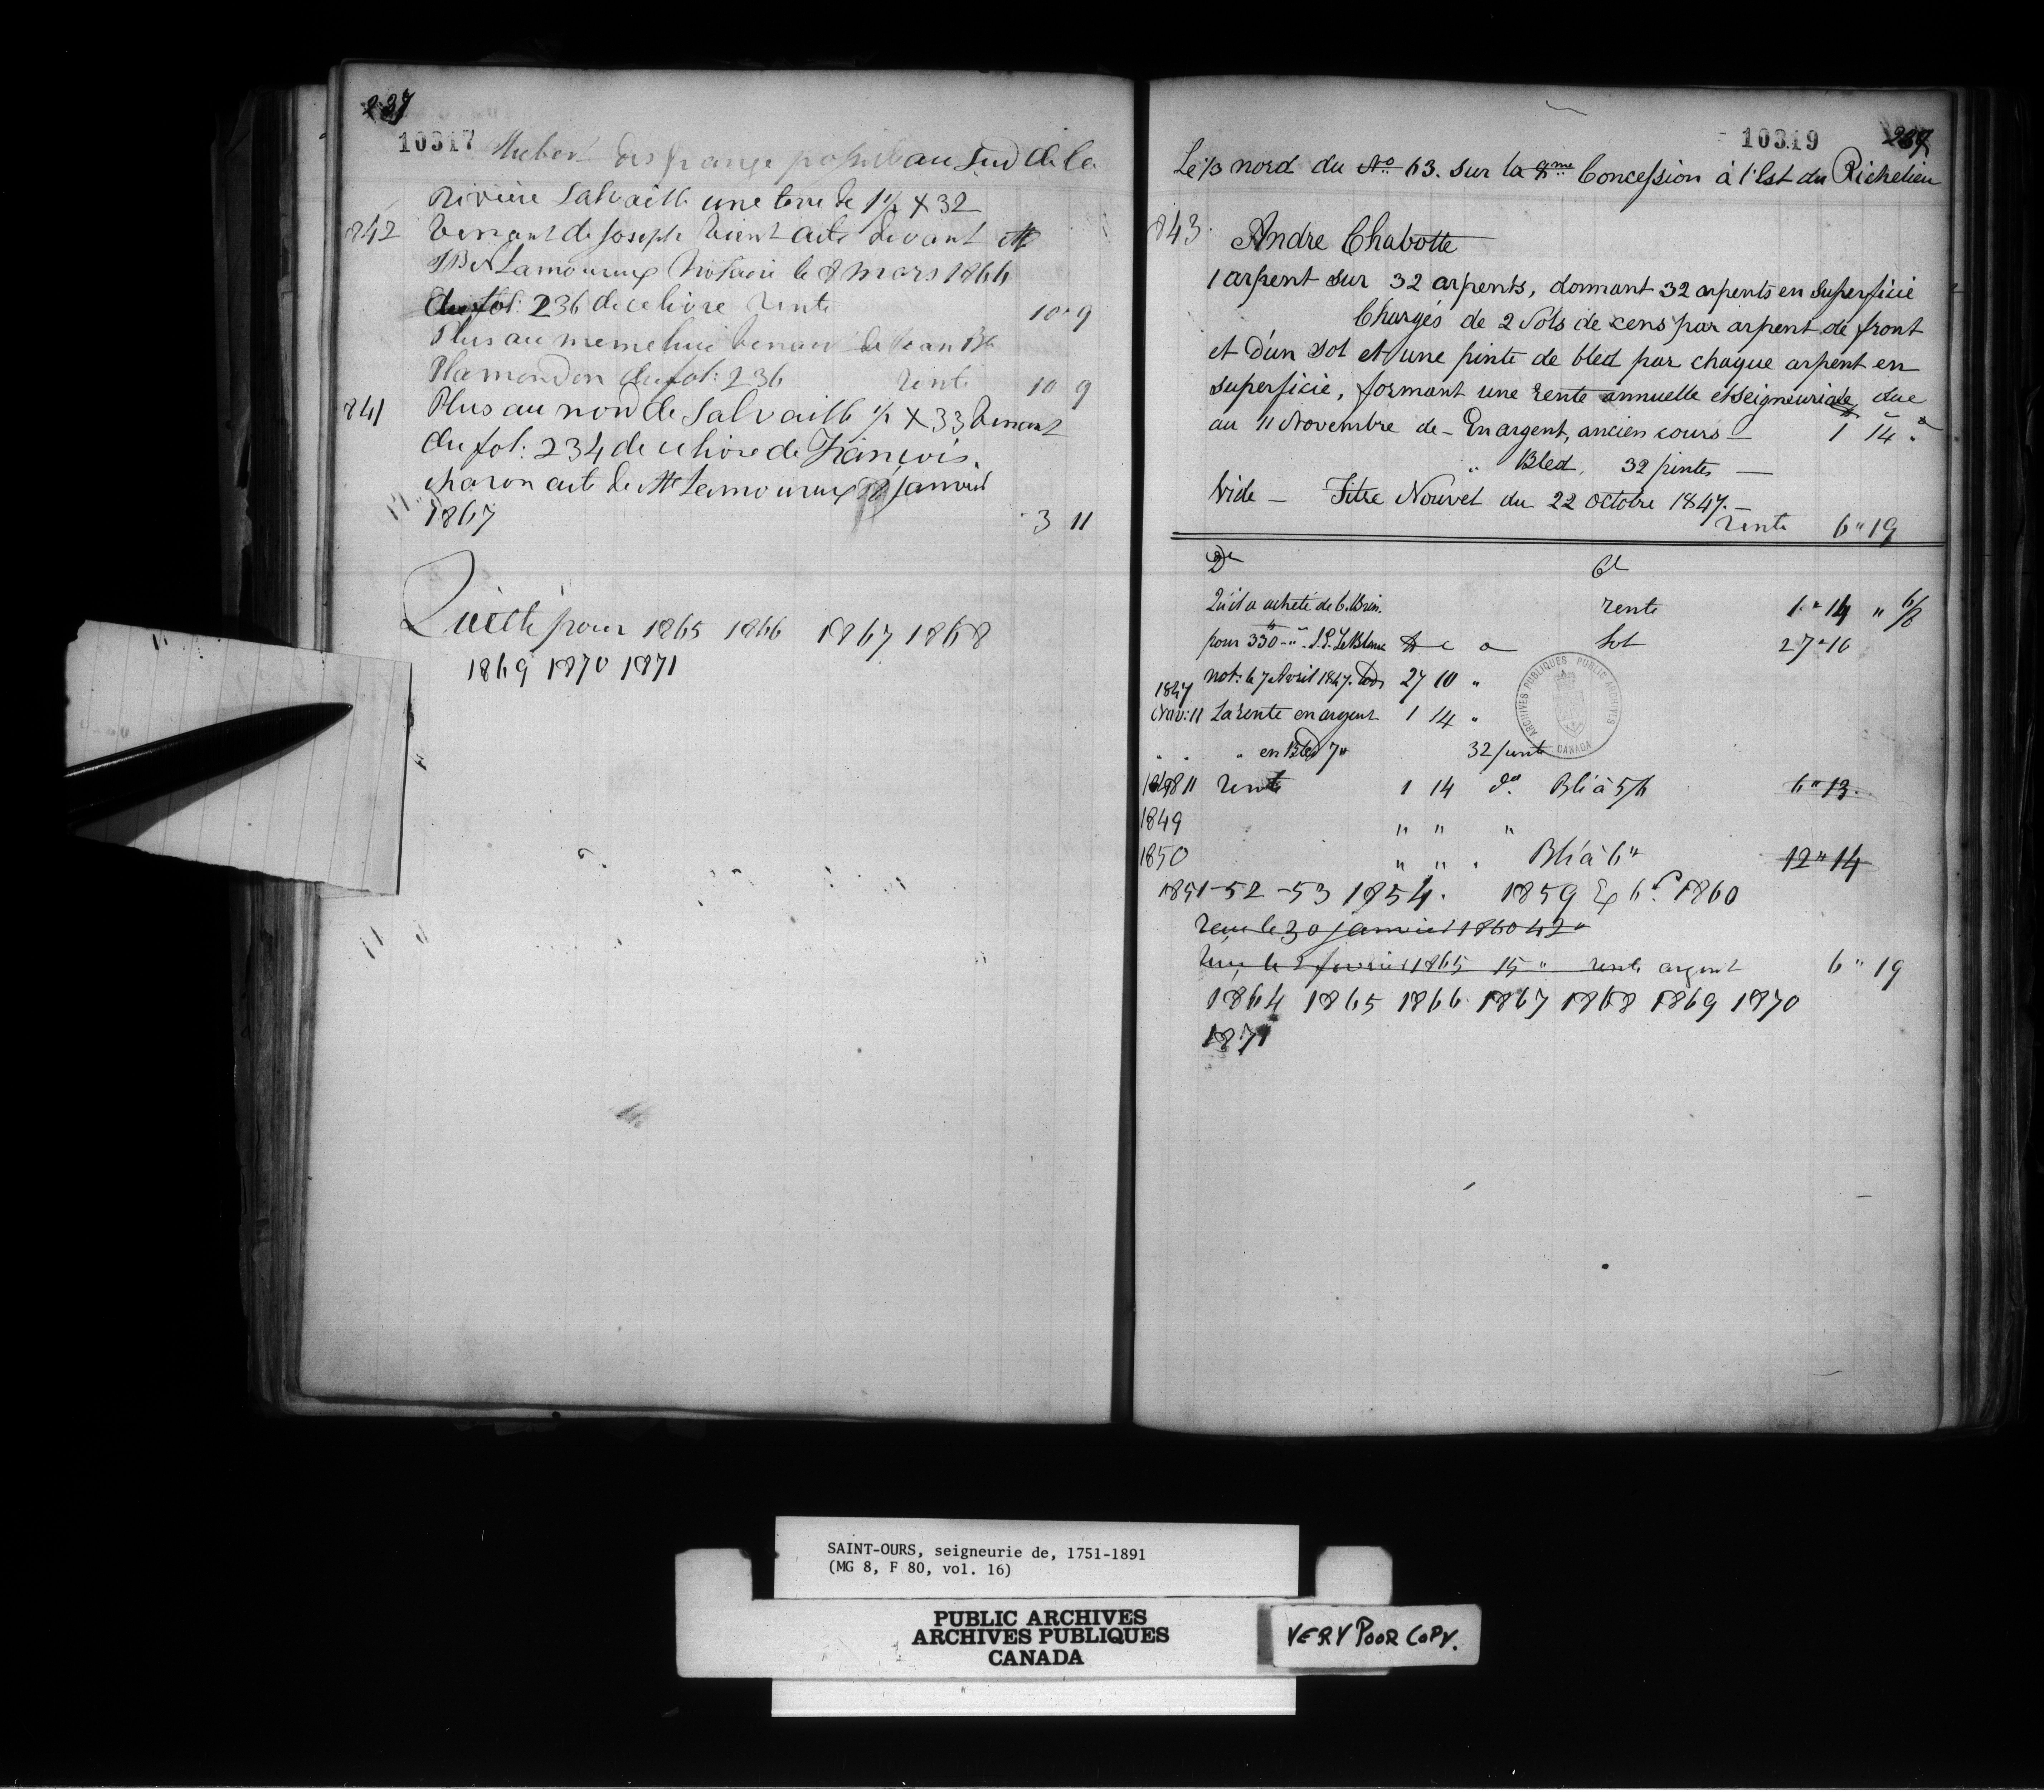 237
10317
au Sud de la
Rivière Salvaille une terre de 1 1/2 X 32
842 Venant de Joseph acte devant Mr
Lamoureux Notaire le 8 mars 1866
du fol: 236 de ce livre rente 10 " 9
Plus au meme lieu venant de Jean Bte
Plamondon du fol: 236 rente 10 9
841 Plus au nord de Salvaille 1/2 X 33 venant
du fol: 234 de ce livre de François
charon acte de Mr Lamoureux janvier
1867 3 11
Quitte pour 1865 1866 1867 1868
1869 1870 1871
10319
Le 1/3 nord du No 63. sur la Concession à l'Est du Richelieu
843 Andre Chabotte
1 arpent sur 32 arpents, donnant 32 arpents en Superficie
Chargés de 2 Sols de cens par arpent de front
et d'un sol et une pinte de bled par chaque arpent en
superficie, formant une rente annuelle et seigneuriale due
au 11 Novembre de - En argent, ancien cours - 1 14 "
" Bled, 32 pintes -
Vide - Titre Nouvel du 22 Octobre 1847. -
rente 6 " 19
Dt Ct
Qu'il a acheté de rente 1 " 14 "
pour 330 27 " 10
not: le 7 Avril 1847. 27 10 "
1847
Nov: 11 La rente en argent 1 14 "
" " " en Bled 32 pinte
1848 11 rente 1 14 do Blé à 5/6 6 " 13
1849 " " "
1850 " " " Blé à 6 " 12 " 14
1851 - 52 - 53 1854. 1859 1860
recu le 30 janvier 1860 42 "
recu le 2 fevrier 1865 15 " rente argent 6 " 19
1864 1865 1866 1867 1868 1869 1870
1871
ARCHIVES PUBLIQUES PUBLIC ARCHIVES
CANADA
SAINT-OURS, seigneurie de, 1751-1891
(MG 8, F 80, vol. 16)
PUBLIC ARCHIVES
ARCHIVES PUBLIQUES
CANADA
VERY POOR COPY.